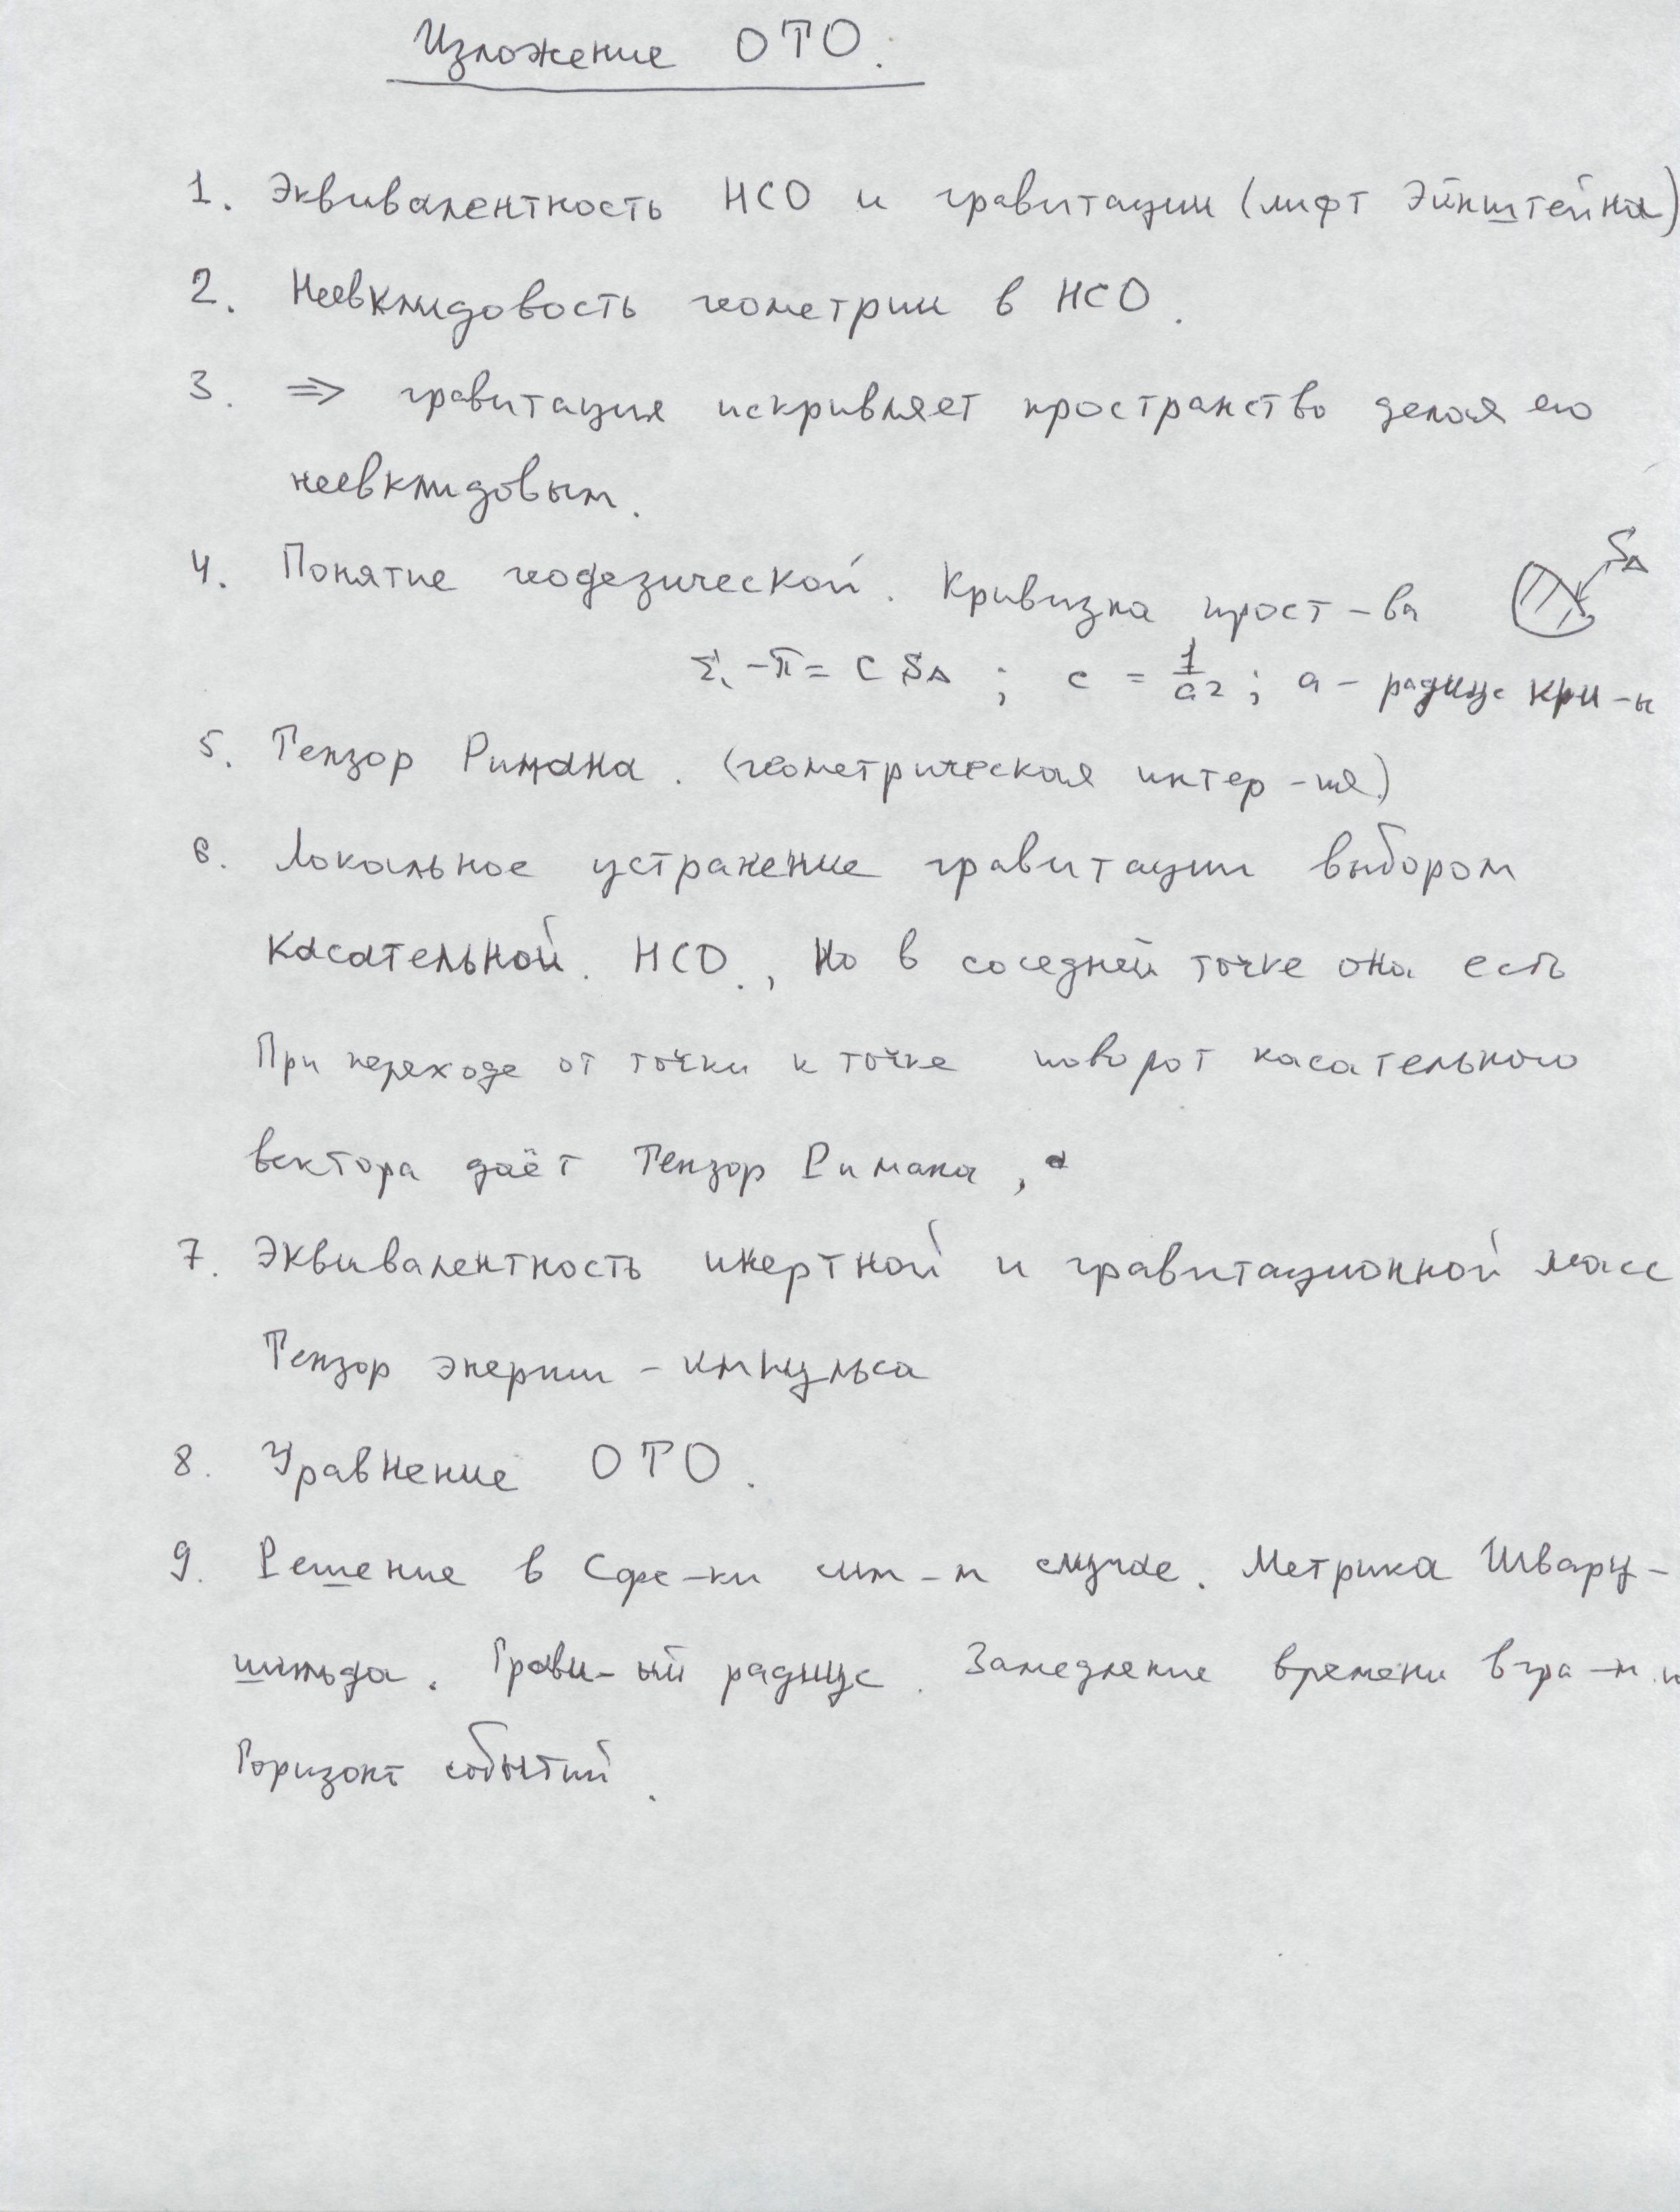 Изложение ОТО.
1. Эквивалентность НСО и гравитации (лифт Эйнштейна)
2. Неевклидовость геометрии в НСО.
3. ⇒ гравитация искривляет пространство делая его
неевклидовым.
4. Понятие геодезической. Кривизна прост-ва
S△
Σ - π = C S△ ; c = 1/a2 ; a - радиус кри-ы
5. Тензор Римана. (геометрическая интер-ия)
6. Локальное устранение гравитации выбором
касательной. НСО., Но в соседней точке она есть
При переходе от точки к точке поворот касательного
вектора даёт Тензор Римана, а
7. Эквивалентность инертной и гравитационной масс
Тензор энергии - импульса
8. Уравнение ОТО.
9. Решение в Сфе-ки сим-м случае. Метрика Шварц-
шильда. Грави-ый радиус. Замедление времени в гра-м п
Горизонт событий.